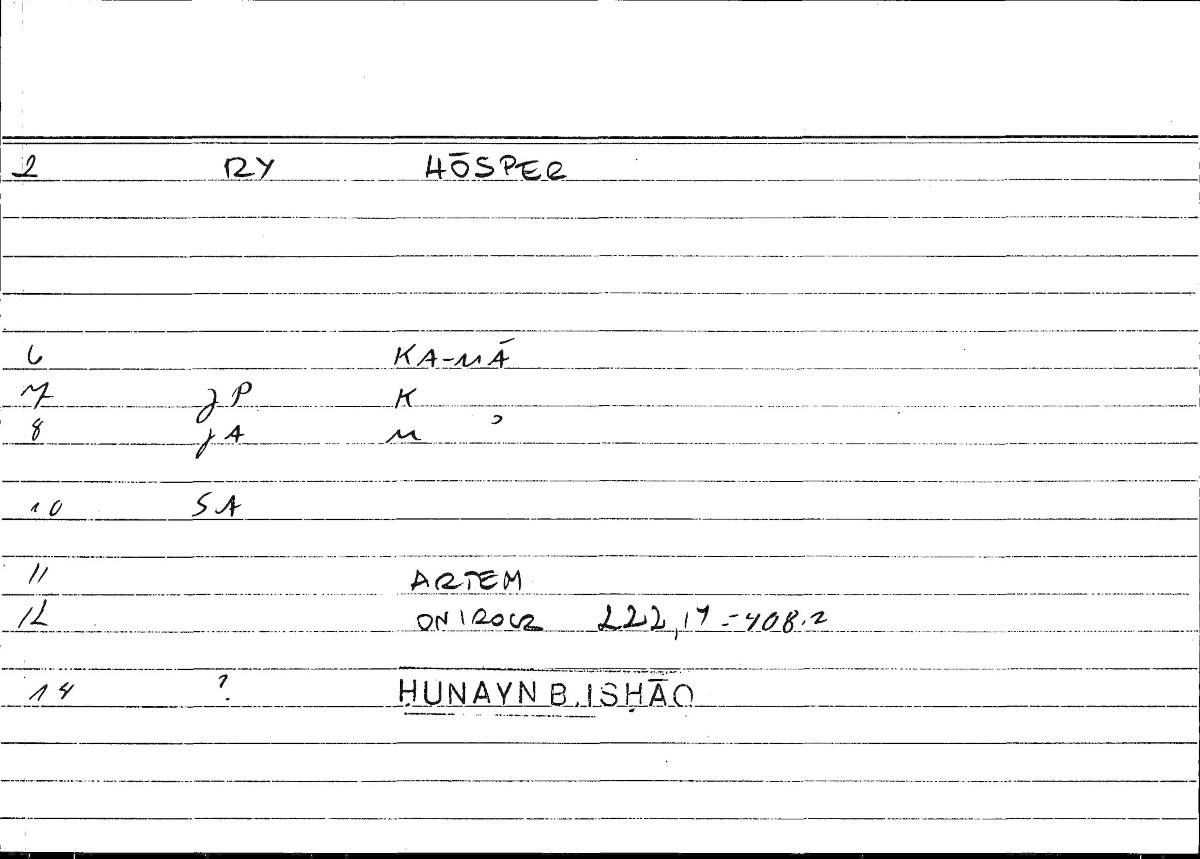 2 RY HŌSPER
6 KA-MĀ
7 JP K
8 JA M ʾ
10 SA
11 ARTEM
12 ONIROCR 222,17 = 408.2
14 ? ḤUNAYN B. ISḤĀQ